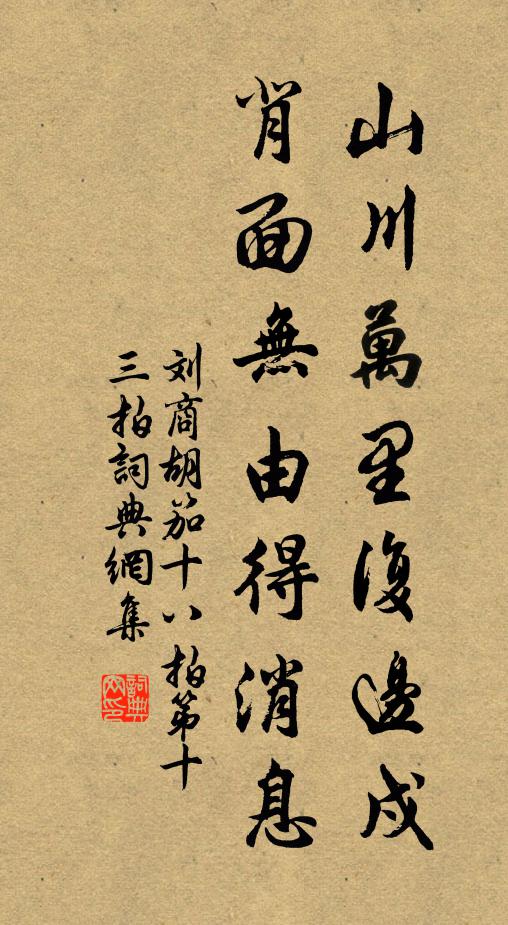 山川萬里復邊戍
背面無由得消息
刘商胡笳十八拍第十
三拍詞典網集
詞典网印